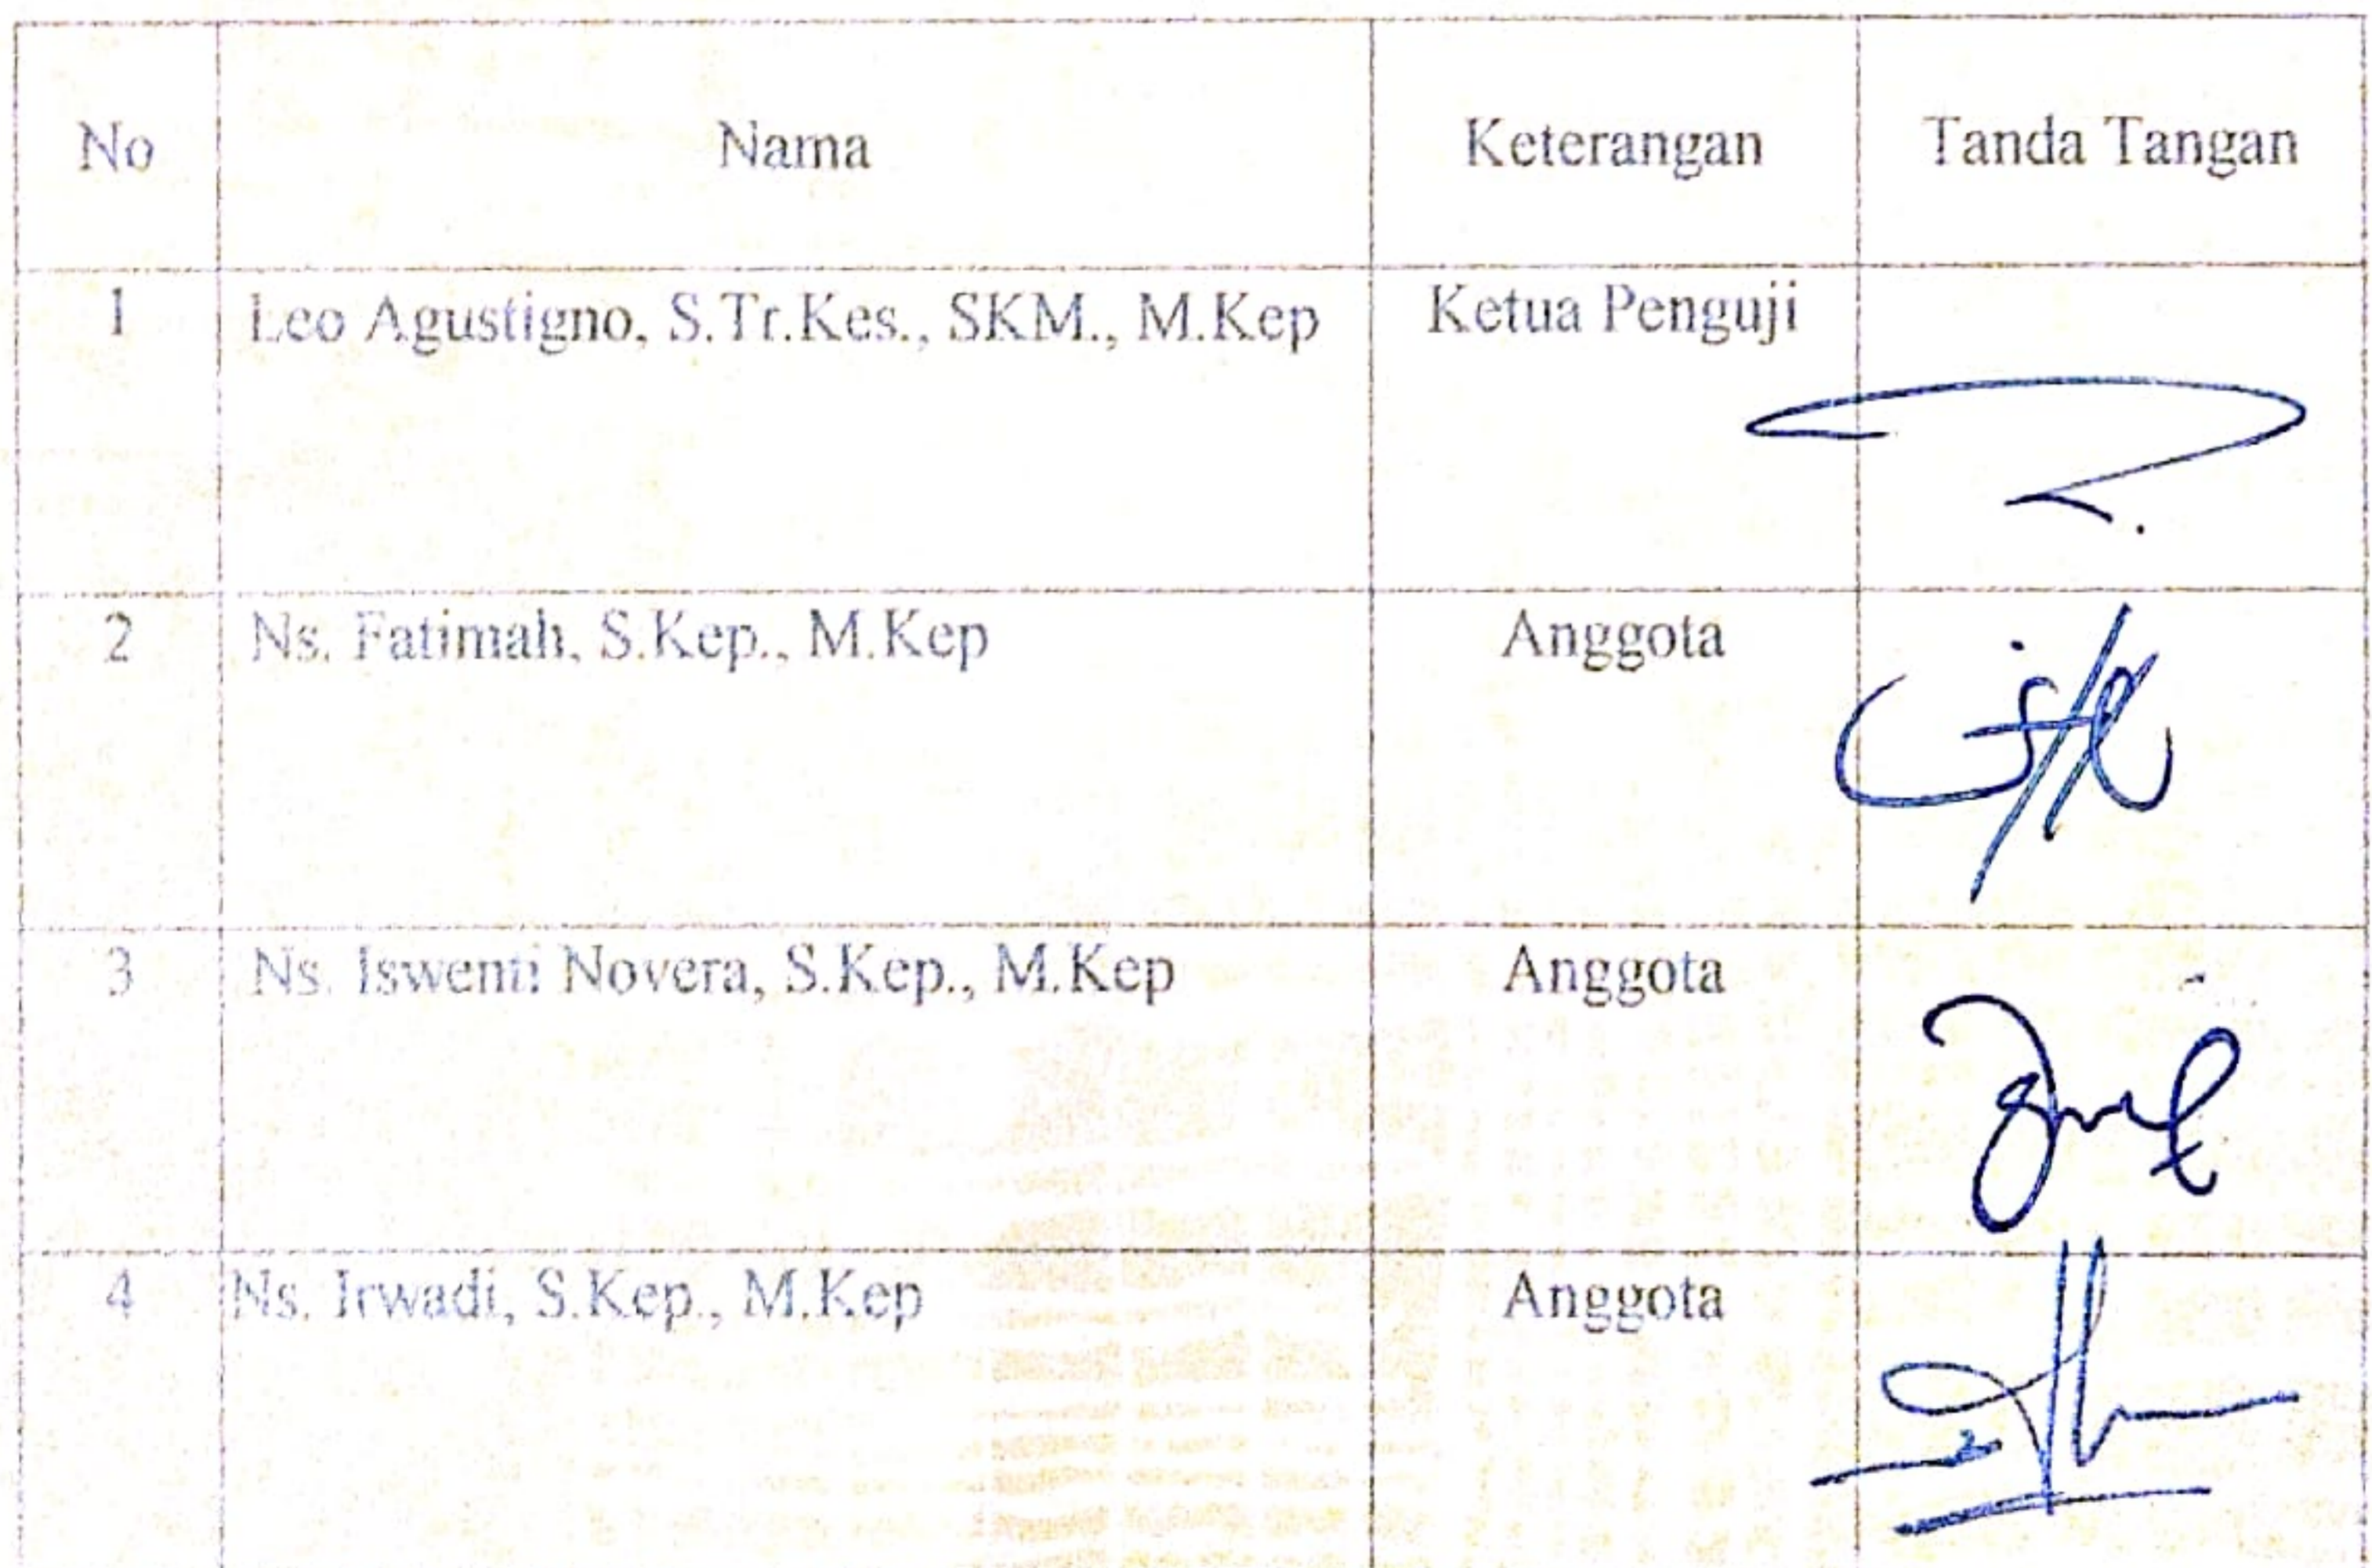 No Nama Keterangan Tanda Tangan
1 Leo Agustigno, S.Tr.Kes., SKM., M.Kep Ketua Penguji
2 Ns. Fatimah, S.Kep., M.Kep Anggota
3 Ns. Iswenti Novera, S.Kep., M.Kep Anggota
4 Ns. Irwadi, S.Kep., M.Kep Anggota